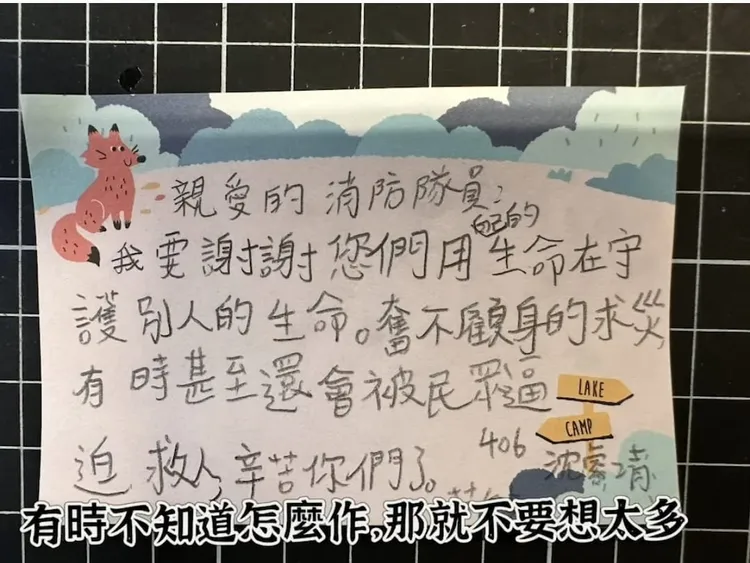 親愛的 消防隊員：
我要謝謝您們用自己的生命在守
護別人的生命。奮不顧身的求災,
有時甚至還會被民眾逼
LAKE
CAMP
迫救人,辛苦你們了。
406 沈
有時不知道怎麼作,那就不要想太多